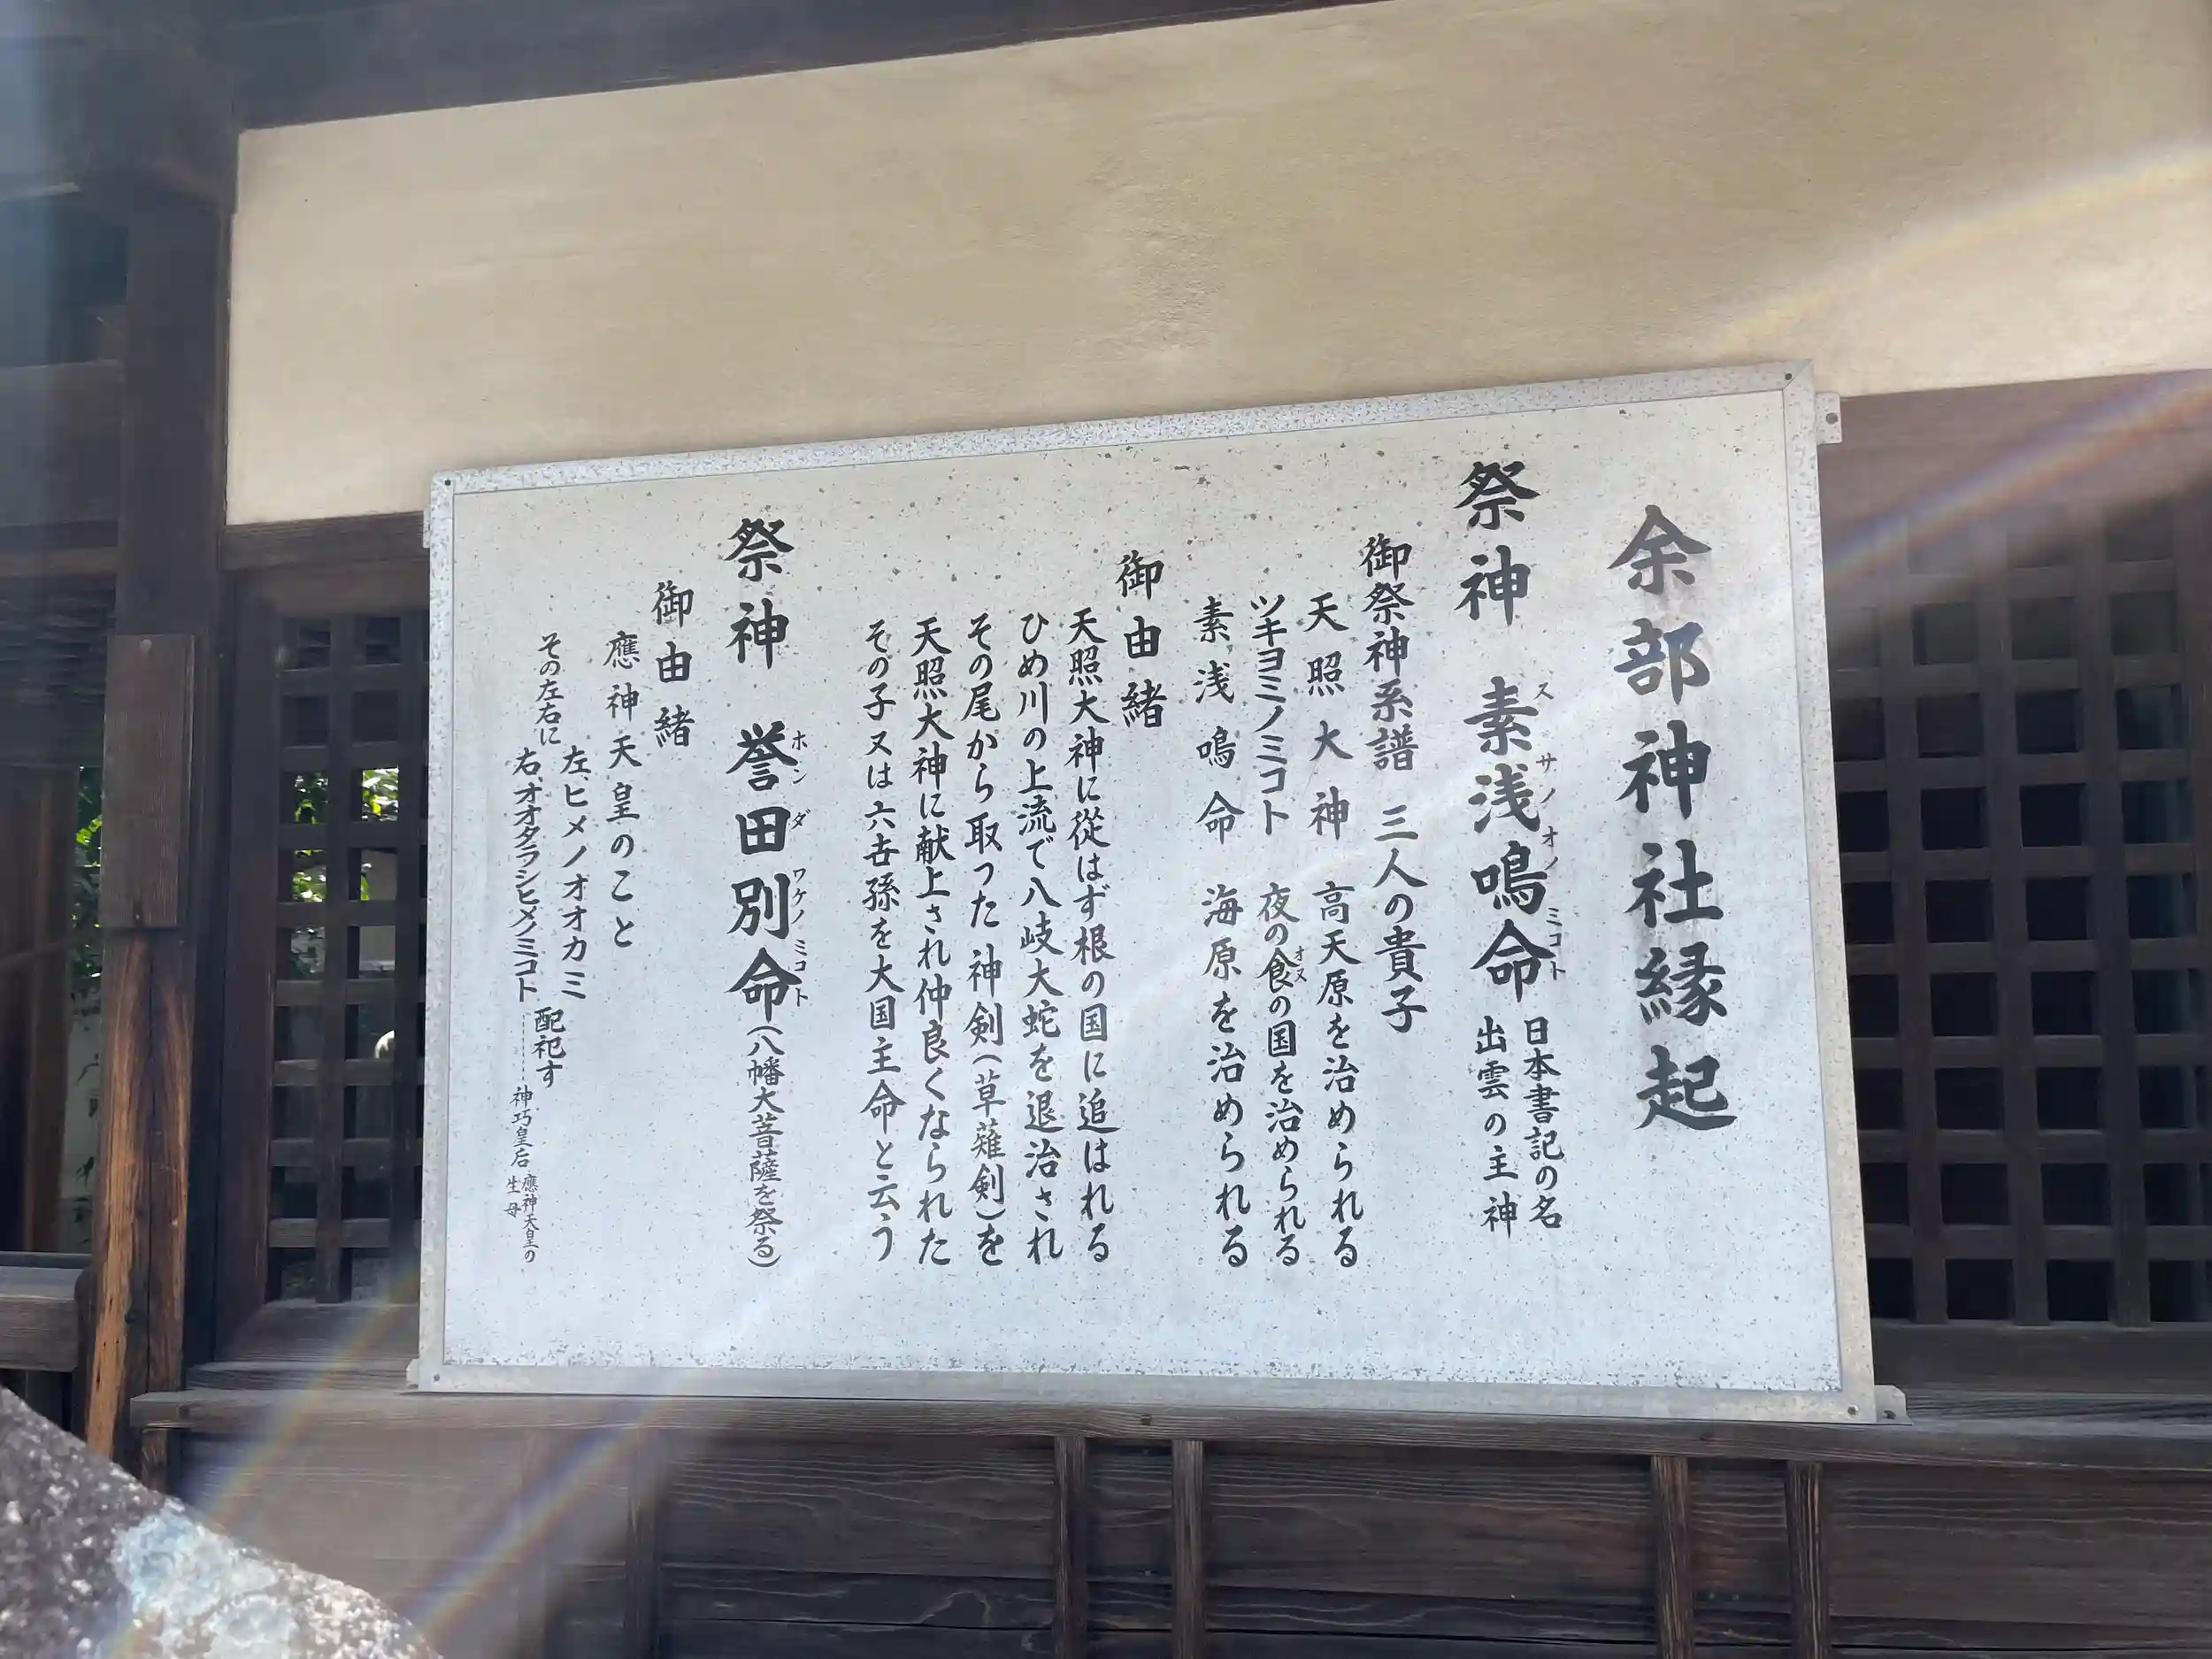 余部神社縁起
祭神 素浅鳴命 日本書記の名
スサノオノミコト
出雲の主神
御祭神系譜 三人の貴子
天照大神 高天原を治められる
ツキヨミノミコト 夜の食の国を治められる
オス
素浅鳴命 海原を治められる
御由緒
天照大神に従はず根の国に追はれる
ひめ川の上流で八岐大蛇を退治され
その尾から取った神剣(草薙剣)を
天照大神に献上され仲良くなられた
その子又は六𠮷孫を大国主命と云う
祭神 誉田別命(八幡大菩薩を祭る)
ホンダワケノミコト
御由緒
應神天皇のこと
その左右に
左、ヒメノオオカミ
右、オオタラシヒメノミコト
配祀す
神巧皇后 應神天皇の
生母